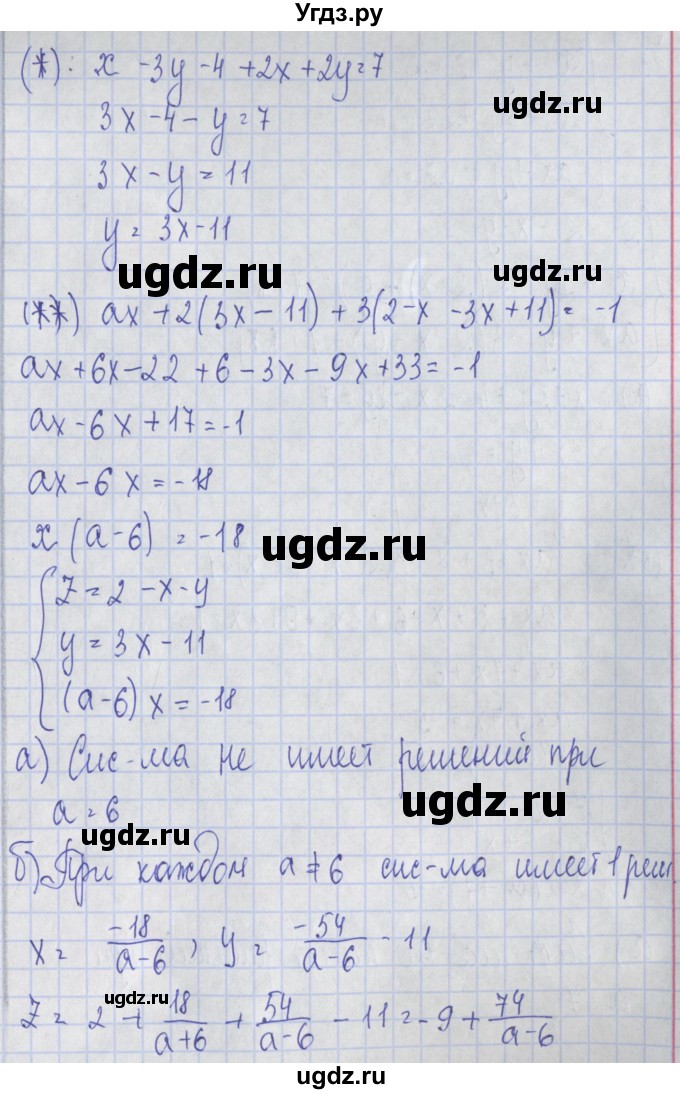 Угдз.ру
(*): x -3y -4 +2x +2y=7
ugdz.ru
3x -4 - y = 7
3x - y = 11
y = 3x - 11
ugdz.ru
ugdz.ru
(**) ax + 2(3x - 11) + 3(2-x -3x +11) = -1
ax + 6x - 22 + 6 - 3x - 9x + 33 = -1
ax - 6x + 17 = -1
ax - 6x = -18
x (a-6) = -18
ugdz.ru
z = 2 - x - y
y = 3x - 11
(a-6) x = -18
а) Сис-ма не имеет решений при
a = 6
ugdz.ru
ugdz.ru
б) При каждом a ≠ 6 сис-ма имеет 1 реш.
x = -18/(a-6) , y = -54/(a-6) - 11
ugdz.ru
z = 2 + 18/(a+6) + 54/(a-6) - 11 = -9 + 74/(a-6)
ugdz.ru